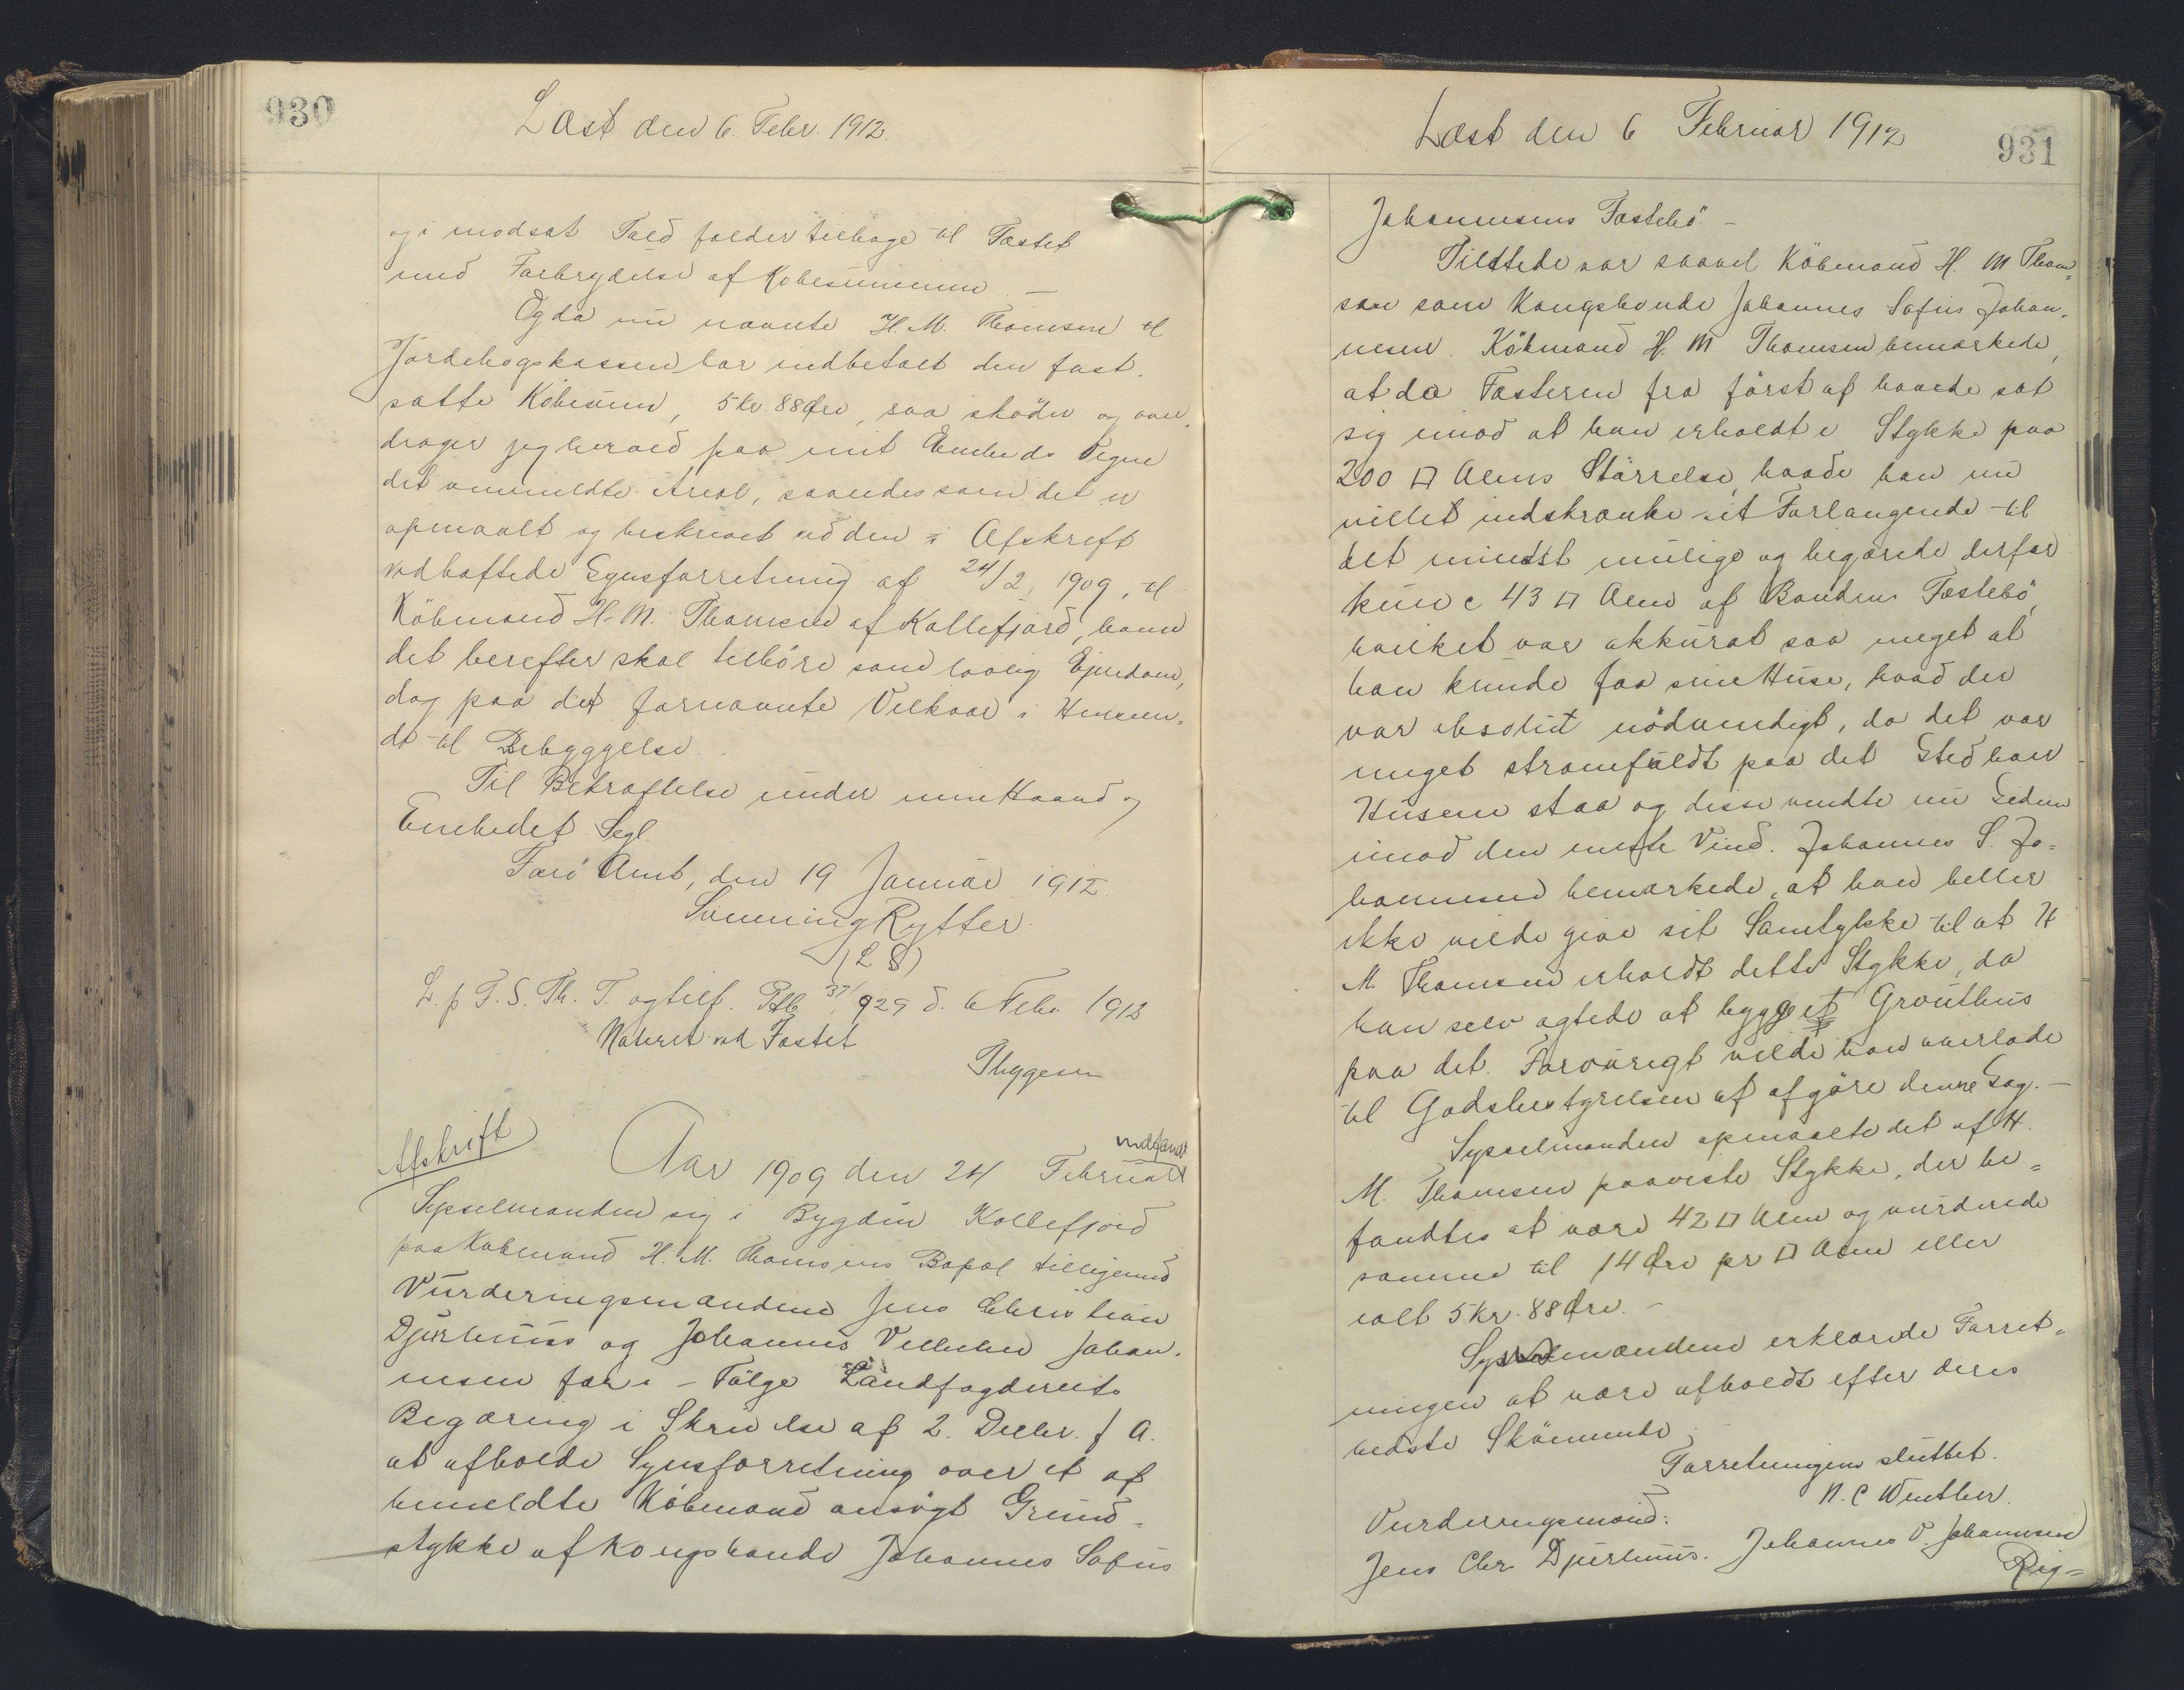 930
Læst den 6. Febr. 1912.
og i modsat Fald falder tilbage til Fæstet
med Forbrydelse af Købesummen –
Og da nu nævnte H. M. Thomsen til
Jordebogskassen har indbetalt den fast-
satte Købesum, 5 Kr. 88 Øre, saa skøder og over-
drager jeg herved paa mit Embeds Vegne
det ommeldte Areal, saaledes som det er
opmaalt og beskrevet ved den i Afskrift
vedhæftede Synsforretning af 24/2 1909, til
Købmand H. M. Thomsen af Kollefjord, hvem
det herefter skal tilhøre som lovlig Ejendom,
dog paa det fornævnte Vilkaar i Henseen-
de til Bebyggelse.
Til Bekræftelse under min Haand og
Embedet Segl.
Færø Amt, den 19 Januar 1912.
Svenning Rytter.
(L S)
L. p F. S. Th. T. og tilf. Ptb. 37/929 d. 6 Febr 1912
Noteret ved Fæstet
Thygesen
Afskrift
indfandt
Aar 1909 den 24 Februar
Sysselmanden sig i Bygden Kollefjord
paa Købmand H. M. Thomsens Bopæl tilligemed
Vurderingsmændene Jens Christian
Djurhuus og Johannes Vilhelm Johan-
nesen for i – Følge Landfogderiets
Begæring i Skrivelse af 2. Decbr. f A.
at afholde Synsforretning over et af
bemeldte Købmand ansøgt Grund-
stykke af Kongsbonde Johannes Sofus
Læst den 6 Februar 1912
931
Johannesens Fæstebø. –
Tilstede var saavel Købmand H. M Thom-
sen som Kongsbonde Johannes Sofus Johan-
nesen. Købmand H. M Thomsen bemærkede,
at da Fæsteren fra først af havde sat
sig imod at han erholdt e Stykke paa
200 □ Alens Størrelse, havde han nu
villet indskrænke sit Forlangende til
det mindst mulige og begærede derfor
kun c 43 □ Alen af Bondens Fæstebø,
hvilket var akkurat saa meget at
han kunde faa sine Huse, hvad der
var absolut nødvendigt, da det var
meget stromfuldt paa det Sted hvor
Husene staa og disse vendte nu Siden
imod den meste Vind. Johannes S. Jo-
hannesen bemærkede, at han heller
ikke vilde give sit Samtykke til at H
M. Thomsen erholdt dette Stykke, da
han selv agtede at bygge et Grouthus
paa det. Forøvrigt vilde han overlade
til Godsbestyrelsen at afgøre denne Sag. –
Sysselmanden opmaalte det af H.
M. Thomsen paaviste Stykke, der be-
fandtes at være 42 □ Alen og vurderede
samme til 14 Øre pr □ Alen eller
ialt 5 Kr. 88 Øre. –
Synsmændene erklærede Forret-
ningen at være afholdt efter deres
bedste Skønnende.
Forretningen sluttet.
N. C Winther.
Vurderingsmænd:
Jens Chr Djurhuus. Johannes V. Johannesen
Rig-